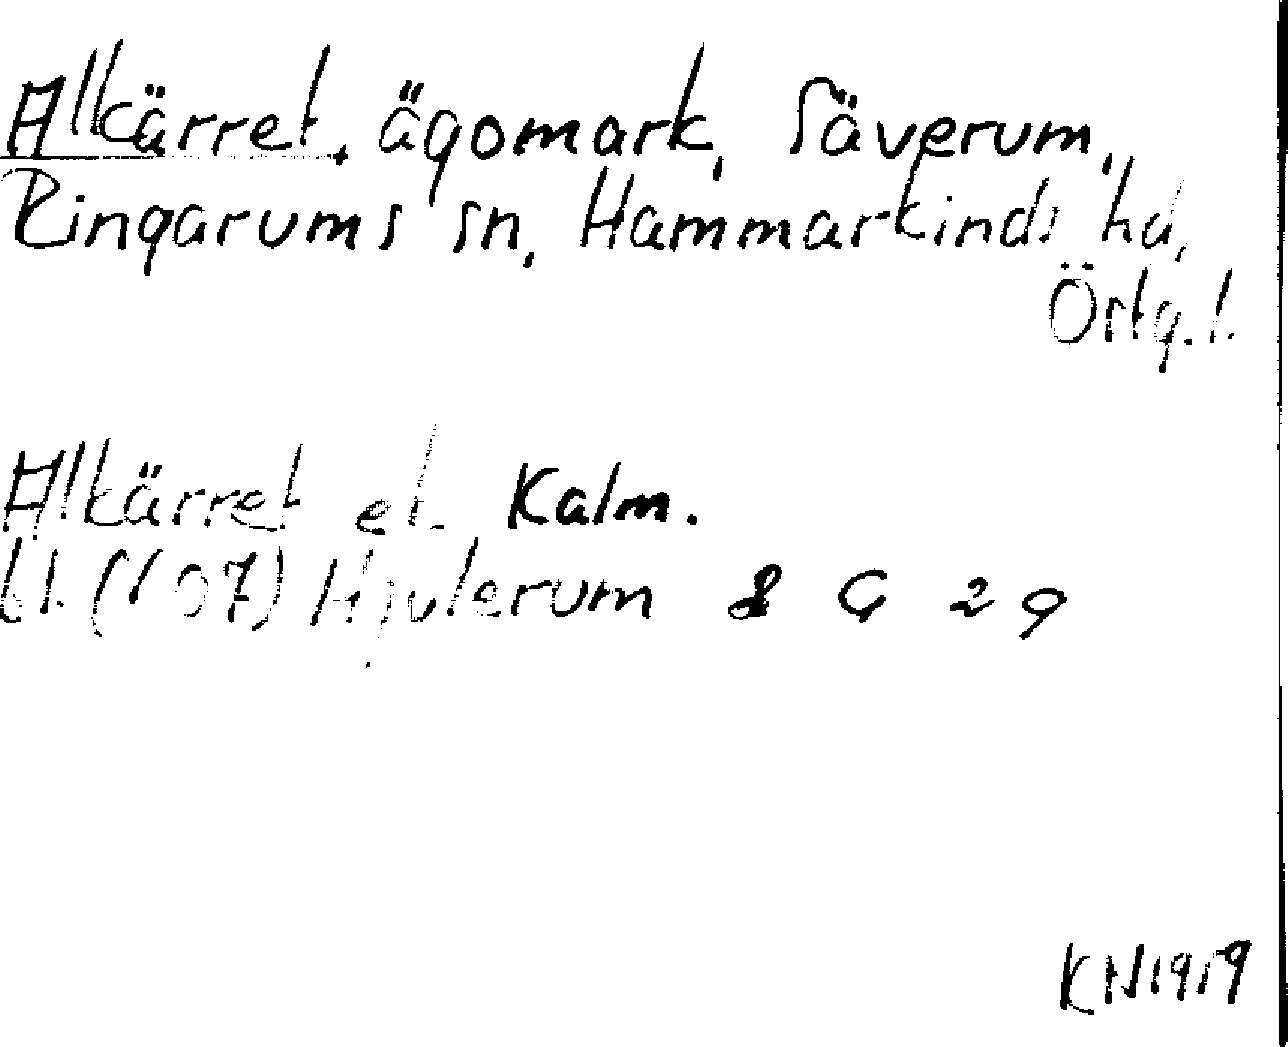 Alkärret, ägomark, Säverum,
Ringarums sn, Hammarkinds hd,
Östg. l.
Alkärret et. Kalm.
bl. (1707) Hjulerum 8 G 29
KN 1919